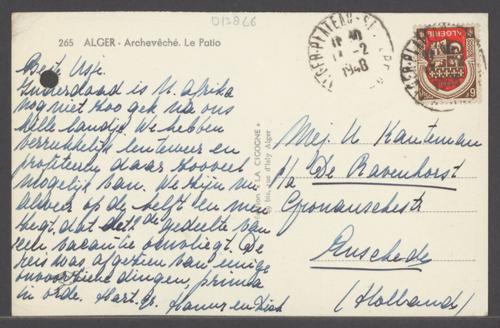 013866
265 ALGER - Archevêché. Le Patio
ALGER-PLATEAU-S
-2
1948
ALGERIE
Inderdaad is N. Afrika
nog niet zoo gek via ons
kille landje. We hebben
verrukkelijk lenteweer en
profiteeren daar zooveel
mogelijk van. We zijn nu
alweer op de helft en men
zegt dat det 2de gedeelte van
een vacantie omvliegt. De
reis was afgezien van eenige
onvoorziene dingen, prima
in orde. Hart. gr. Hanny en Dick
"LA CIGOGNE"
bis, rue d'Isly Alger
Mej. U Kanteman
p/a De Ravenhorst
Gronauschestr
Enschede
(Holland)